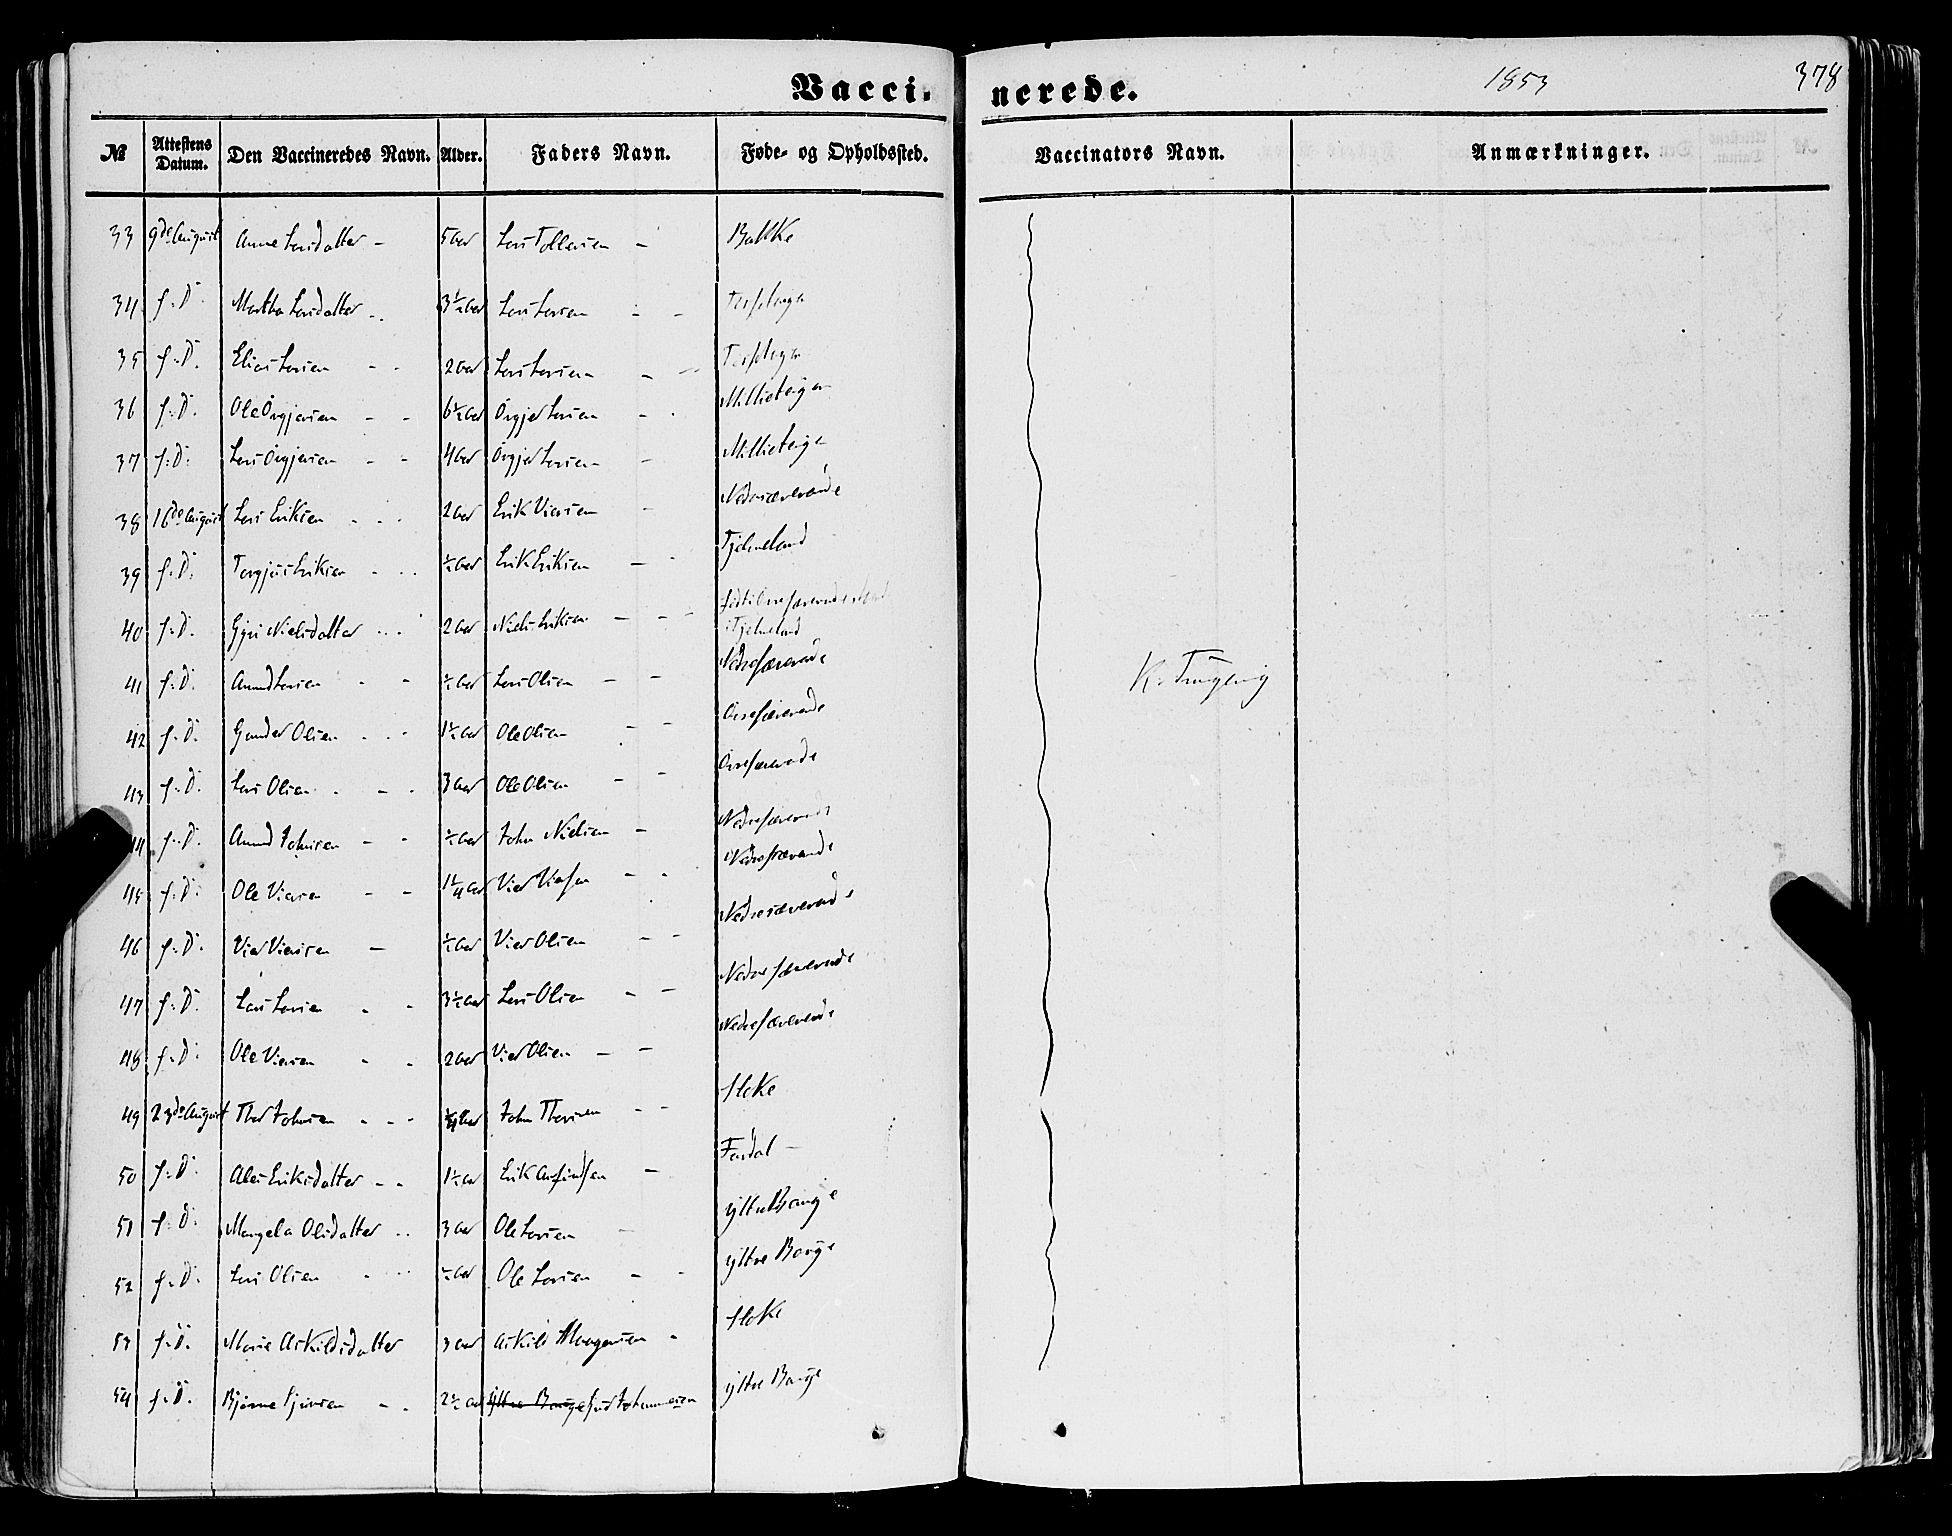 Vaccinerede.
1853
378
№ Attestens Datum. Den Vaccineredes Navn. Alder. Faders Navn. Føde- og Opholdssted. Vaccinators Navn. Anmærkninger.
33 9de August Anne Larsdatter - 5 Aar Lars Tollevsen - Bakke
34 f. D. Martha Larsdatter 3½ Aar Lars Larsen - -
35 f. D. Elias Larsen - - 2 Aar Lars Larsen -
36 f. D. Ole Örgjersen - - 6½ Aar Örgjer Larsen - Millieteigen
37 f. D. Lars Örgjersen - - 4 Aar Örgjer Larsen - Millieteigen
38 16de August Lars Eriksen - - - 2 Aar Erik Viersen - Nedresæverånde
39 f. D. Torgjus Eriksen - ½ Aar Erik Eriksen - - Tjelmeland
40 f. D. Gjri Nielsdatter 2 Aar Niels Eriksen - - i Tjelmeland
41 f. D. Amund Larsen - - ½ Aar Lars Olsen - - Nedresæverande
42 f. D. Gunder Olsen - - - 1½ Aar Ole Olsen - - Övresæverande
43 f. D. Lars Olsen - - - 3 Aar Ole Olsen - - Övresæverande
44 f. D. Amund Johnsen - - ½ Aar John Nielsen - Nedresæverande
45 f. D. Ole Viersen - - 1¼ Aar Vier Nedresæverande
46 f. D. Vier Viersen - ½ Aar Vier Olsen - - Nedresæverande
47 f. D. Lars Larsen - - 3½ Aar Lars Olsen - - Nedresæverande
48 f. D. Ole Viersen - - 2 Aar Vier Olsen - - Nedresæverande
49 23de August Thor Johnsen - - - Aar John Thorsen - -
50 f. D. Eriksdatter - - 1½ Aar Erik Arfindsen - Fardal -
51 f. D. Mangela Olsdatter 3 Aar Ole Larsen - Yttre Bauge
52 f. D. Lars Olsen - ½ Aar Ole Larsen - - Yttre Bauge
53 f. D. Marie Askildsdatter 3 Aar Askild Mongensen -
54 f. D. Bjørne Sjursen - - 2½ Aar Yttre Bauge Sjur Johannesen Yttre Bauge
K.